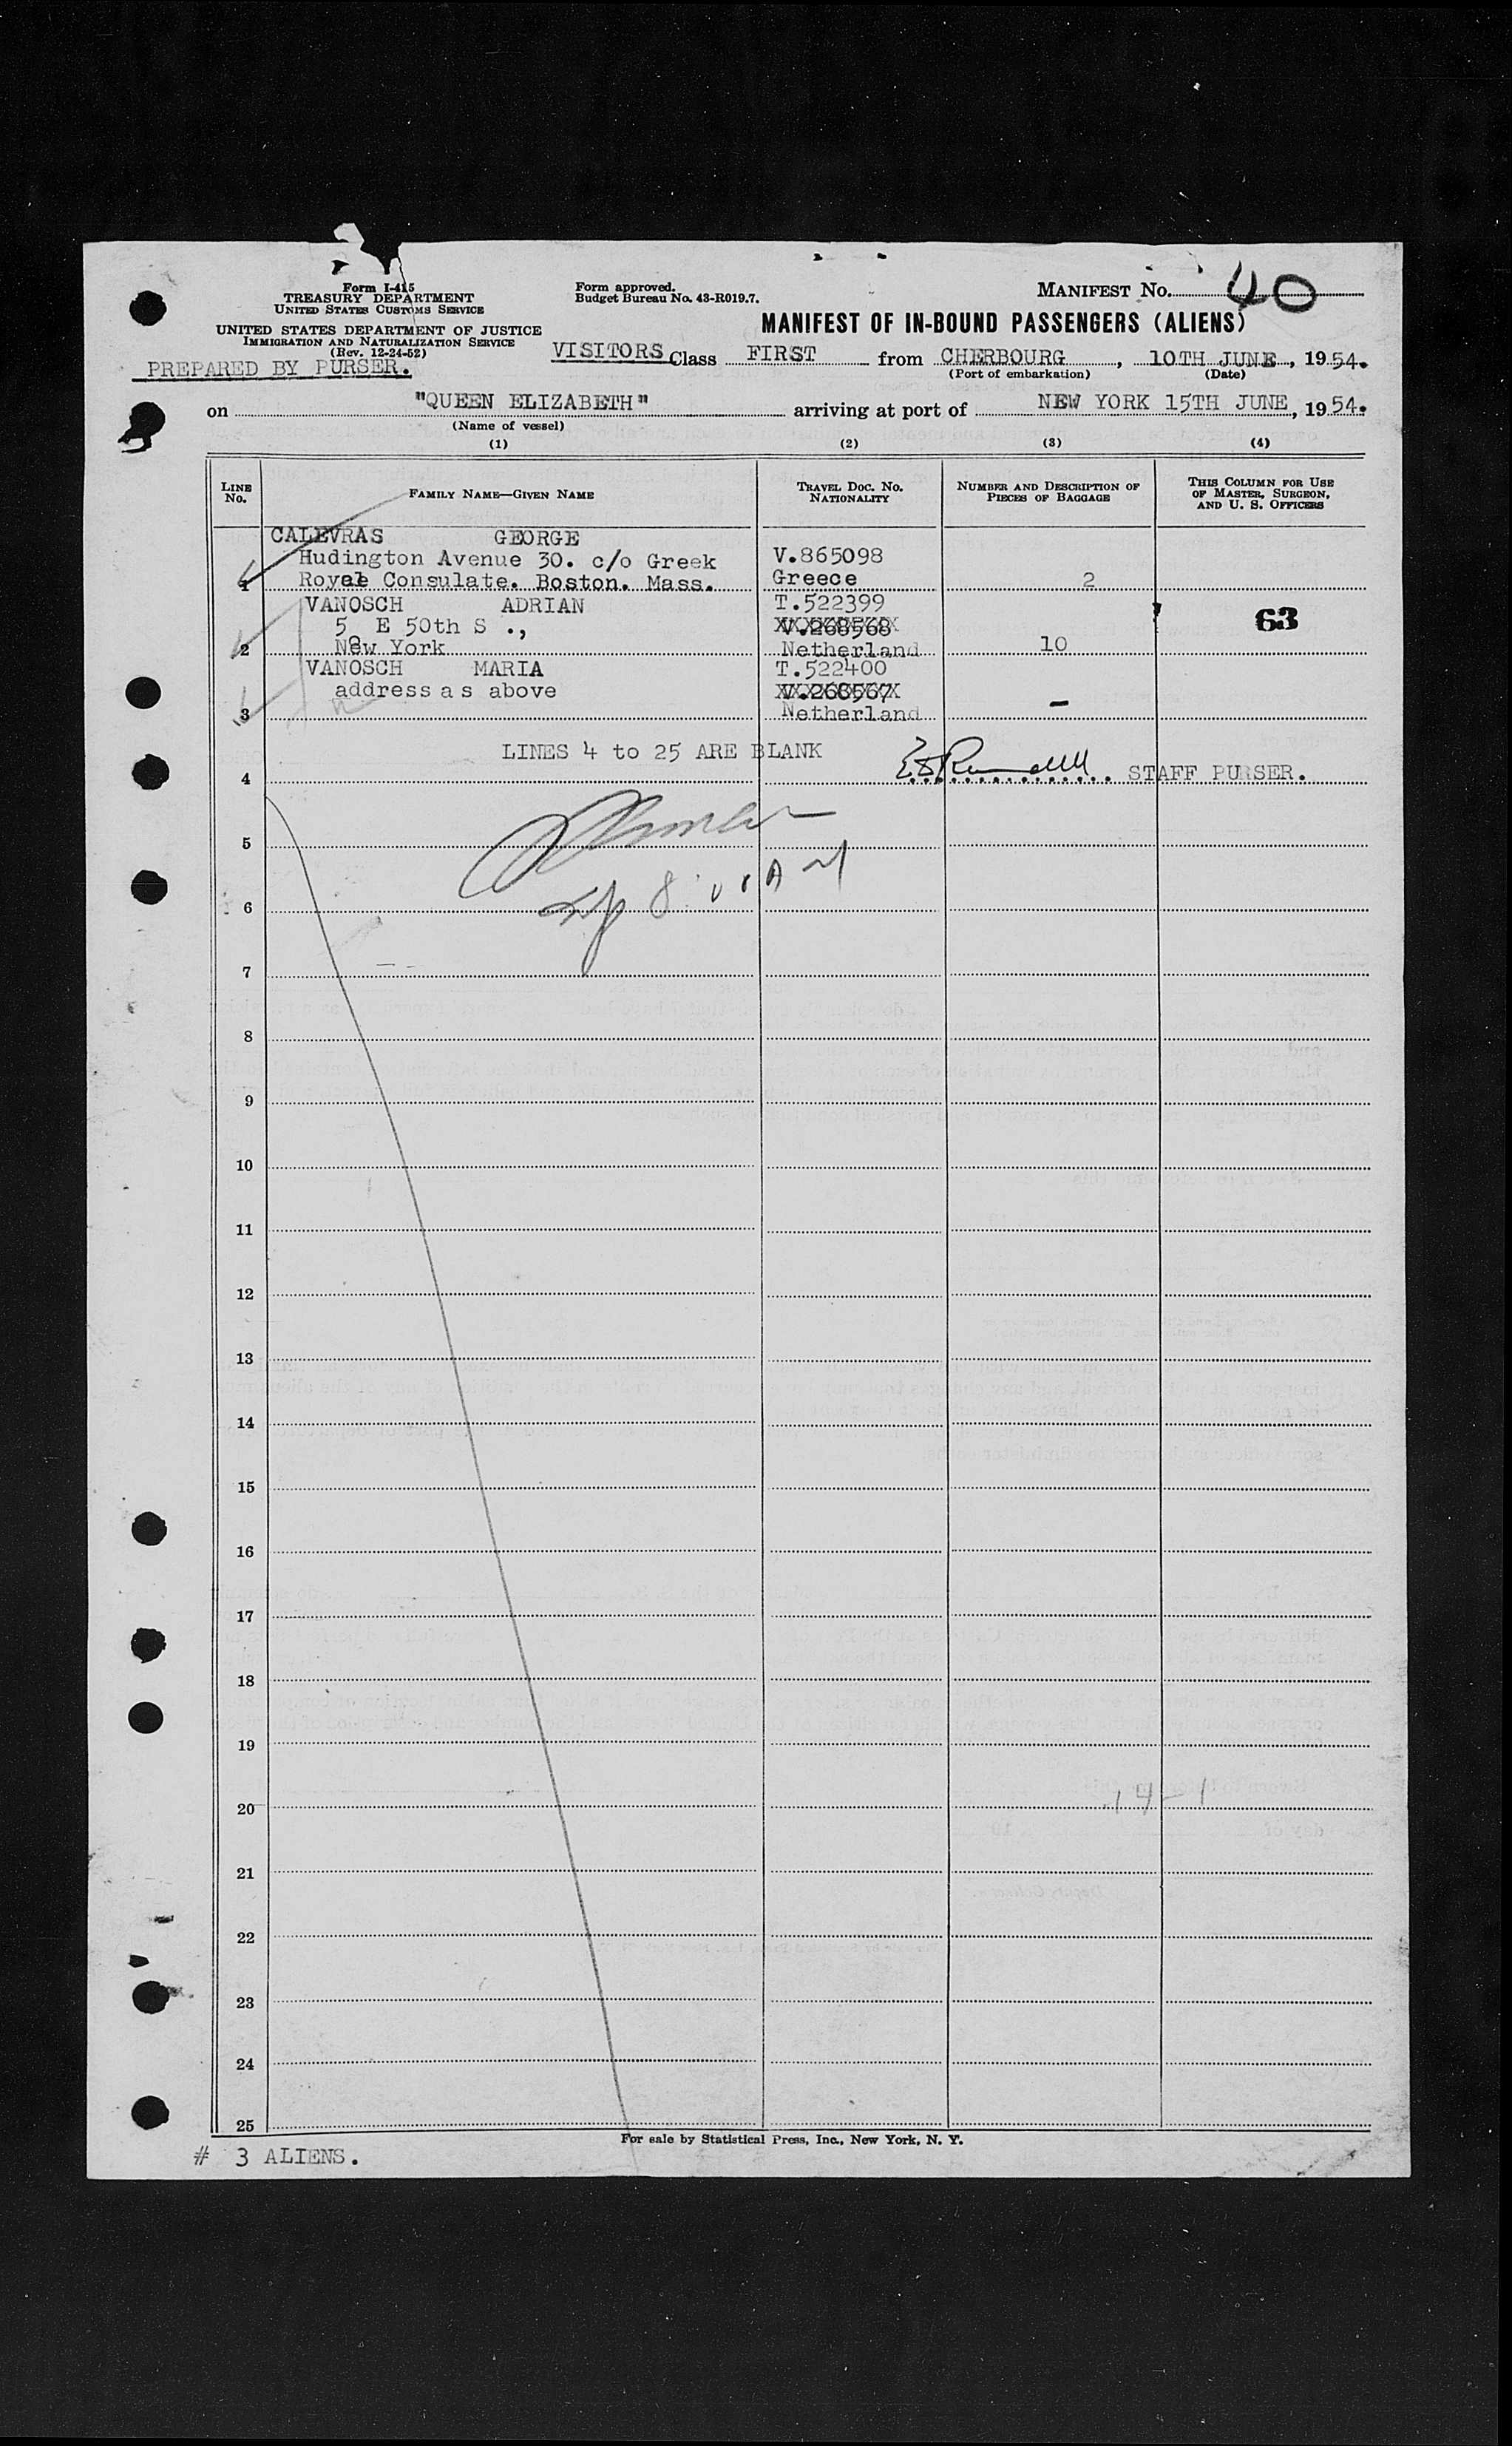 Form I-415
TREASURY DEPARTMENT
UNITED STATES CUSTOMS SERVICE
UNITED STATES DEPARTMENT OF JUSTICE
IMMIGRATION AND NATURALIZATION SERVICE
(Rev. 12-24-52)
PREPARED BY PURSER.
Form approved.
Budget Bureau No. 43-R019.7.
MANIFEST NO. 40
MANIFEST OF IN-BOUND PASSENGERS (ALIENS)
VISITORS Class FIRST from CHERBOURG, 10TH JUNE, 1954.
(Port of embarkation) (Date)
on "QUEEN ELIZABETH" arriving at port of NEW YORK 15TH JUNE, 1954.
(Name of vessel)
(1) (2) (3) (4)
LINE NO. FAMILY NAME—GIVEN NAME TRAVEL DOC. NO. NATIONALITY NUMBER AND DESCRIPTION OF PIECES OF BAGGAGE THIS COLUMN FOR USE OF MASTER, SURGEON, AND U. S. OFFICERS
CALEVRAS GEORGE
Hudington Avenue 30. c/o Greek V.865098
1 Royal Consulate. Boston. Mass. Greece 2
VANOSCH ADRIAN T.522399
5 E 50th S ., V.268568 63
2 New York Netherland 10
VANOSCH MARIA T.522400
address as above V.268567
3 Netherland -
LINES 4 to 25 ARE BLANK
4 STAFF PURSER.
5
6
7
8
9
10
11
12
13
14
15
16
17
18
19
14-1
20
21
22
23
24
25
For sale by Statistical Press, Inc., New York, N. Y.
# 3 ALIENS.